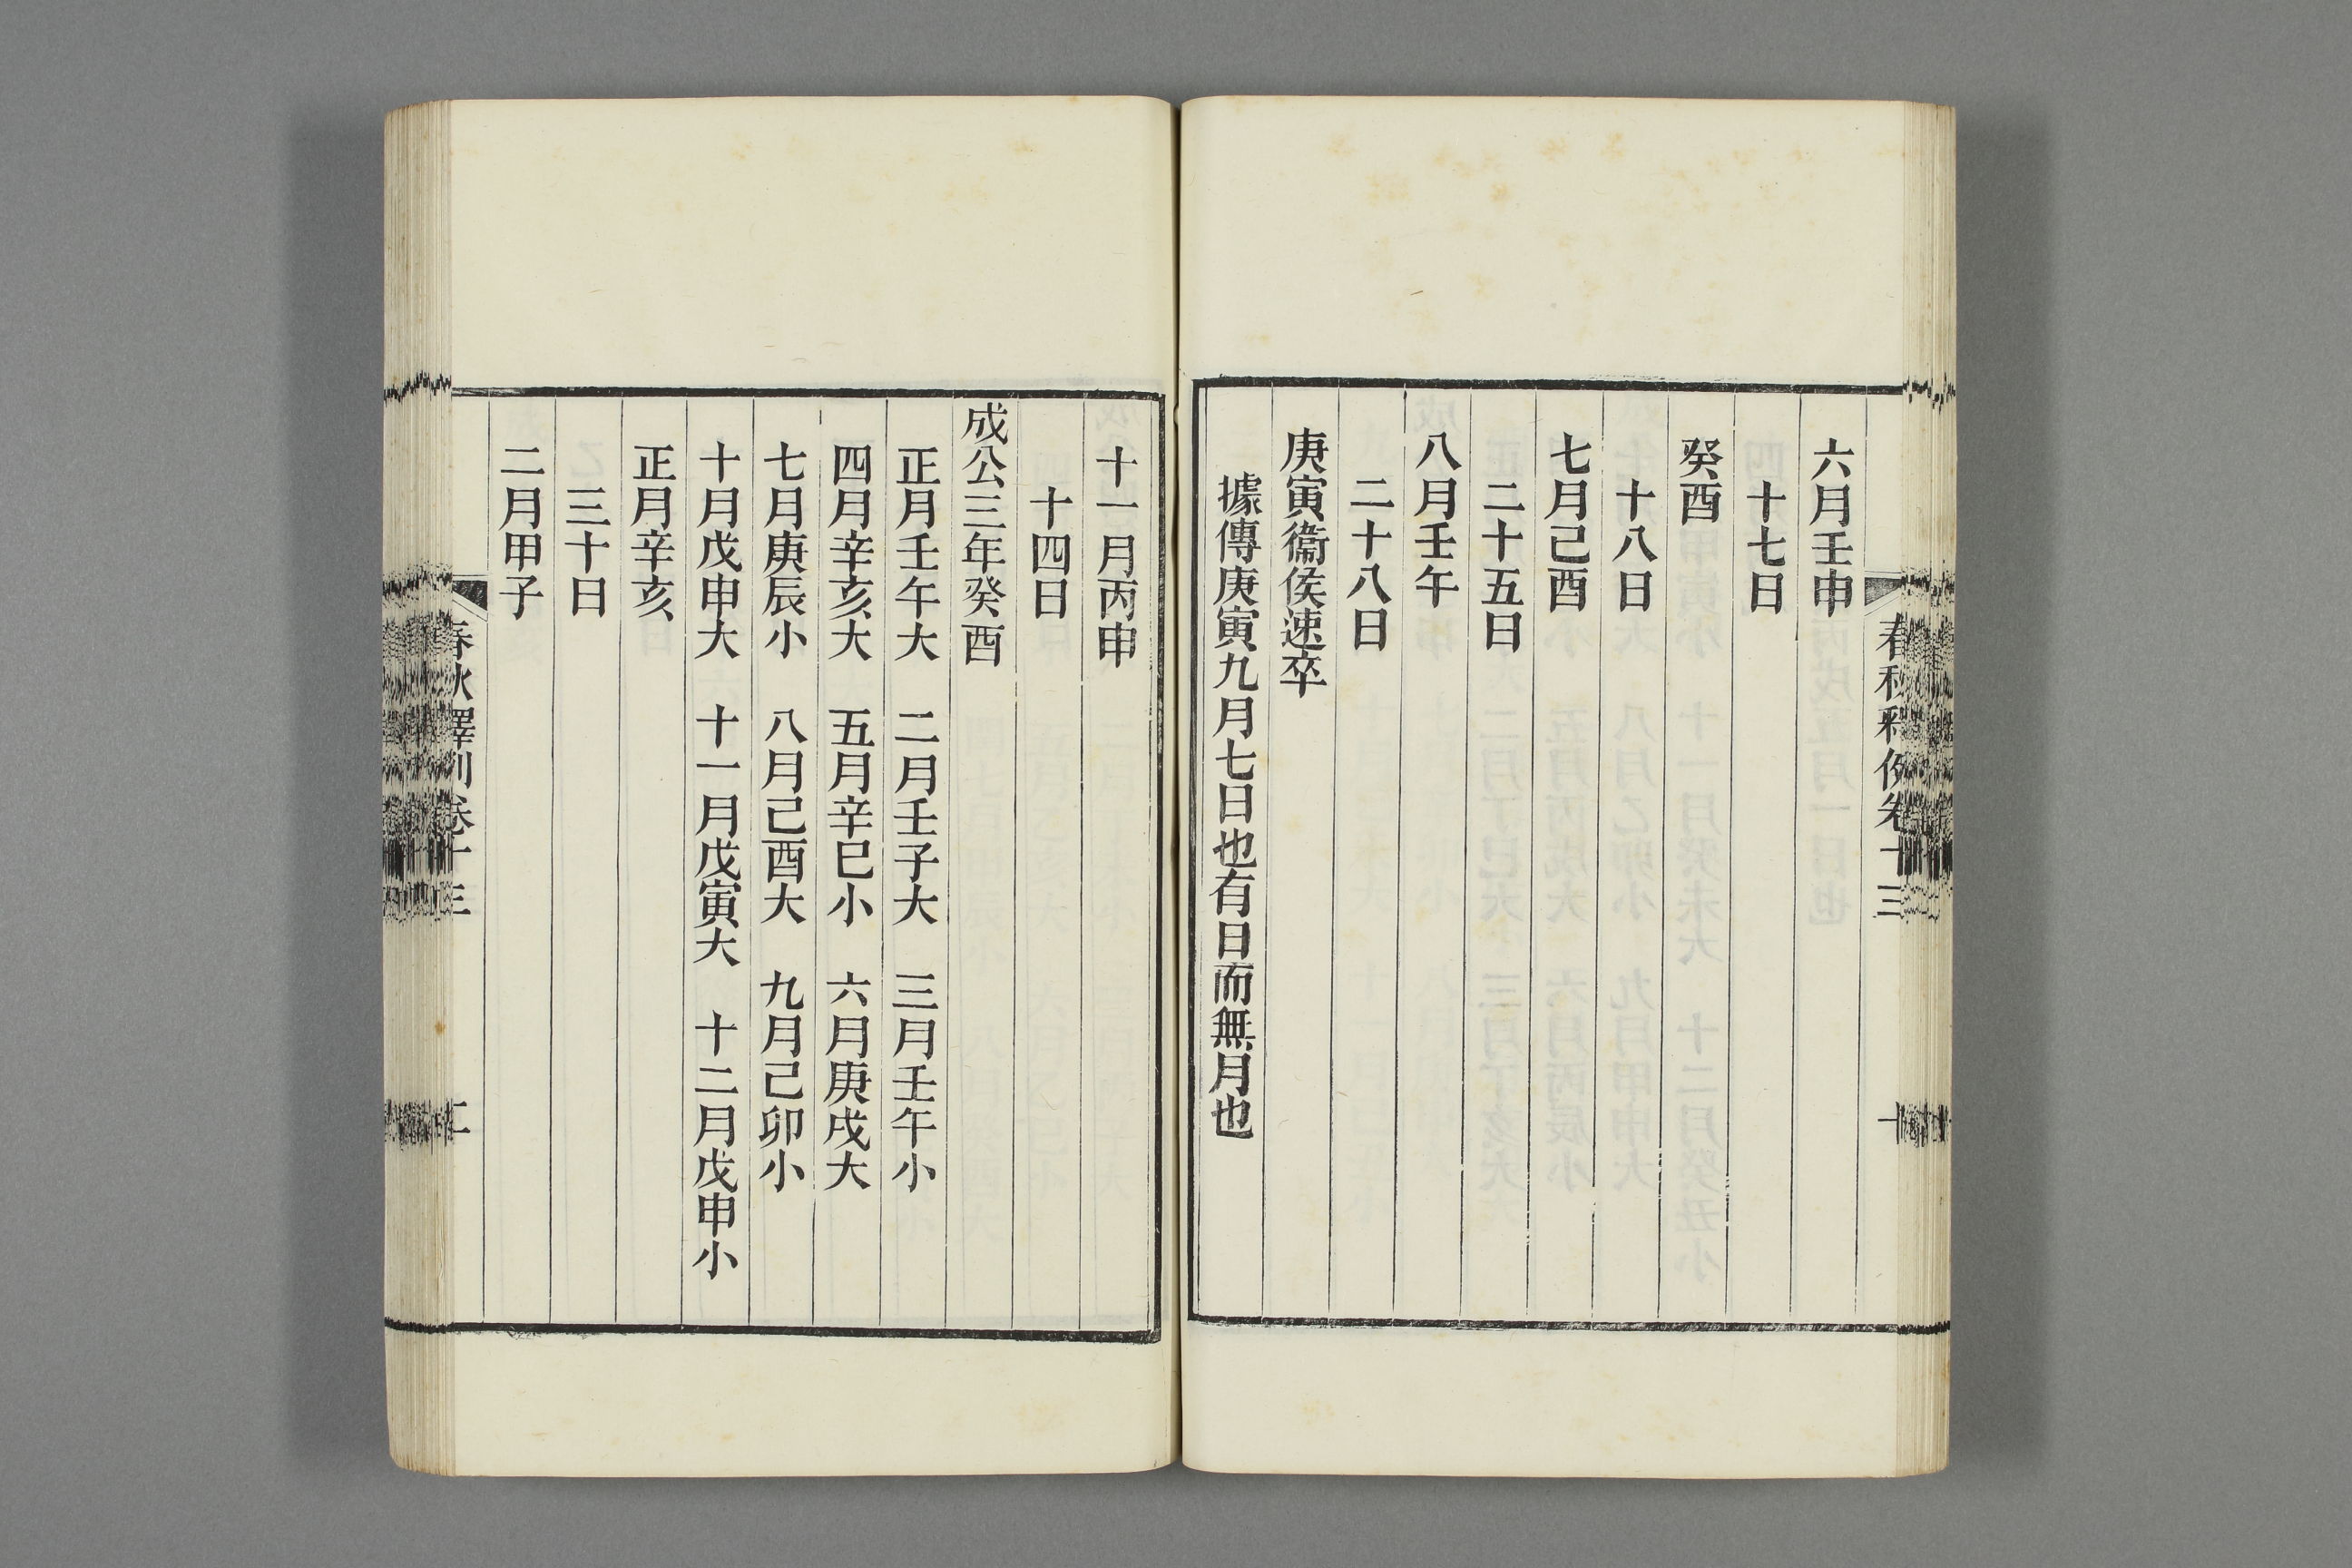 春秋釋例卷十三
六月壬申
十七日
癸酉
十八日
七月己酉
二十五日
八月壬午
二十八日
庚寅衞侯速卒
據傳庚寅九月七日也有日而無月也
十一月丙申
十四日
成公三年癸酉
正月壬午大　二月壬子大　三月壬午小
四月辛亥大　五月辛巳小　六月庚戌大
七月庚辰小　八月己酉大　九月己卯小
十月戊申大　十一月戊寅大　十二月戊申小
正月辛亥
三十日
二月甲子
春秋釋例卷十三